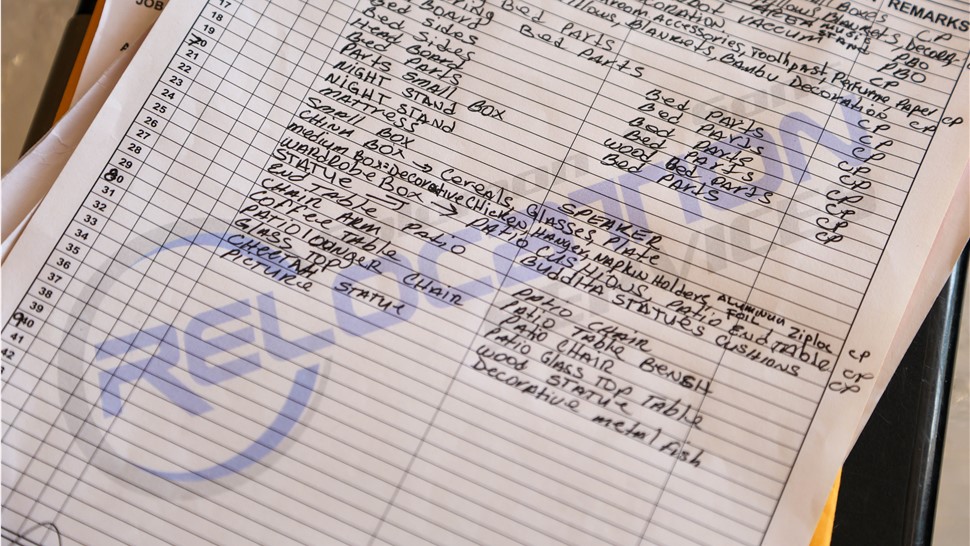 JOB
REMARKS
Boxes
CP
Pillows, Blankets, Decora-
PBO
PBO
VACUUM
Accessories, Toothpast, Perfume, Paper CP
Pillows, Blankets, Bambu Decoration CP
17 Board Bed Parts CP
18 Bed Sides Bed Parts
19 Bed Sides
20 Head Board Bed Parts CP
21 Bed Parts Bed Parts CP
22 Parts Small Box Bed Parts CP
23 NIGHT STAND Wood Bed Parts CP
24 NIGHT STAND Bed Parts CP
25 MATTRESS
26 Small Box SPEAKER
27 CHINA BOX → Cereals, Glasses, Plate
28 medium Box = Decorative Chicken, Hanger, Napkin Holders, ALUMINUM FOIL, Ziploc CP
29 WARDROBE BOX → PATIO CUSHIONS, Patio Endtable CP
30 STATUE BUDDHA STATUES CUSHIONS CP
31 END Table Patio
32 CHAIR ARM PATIO CHAIR
33 Coffee Table PATIO Table BENSH
34 PATIO LOUNGER CHAIR PATIO CHAIR
35 GLASS TOP PATIO GLASS TOP Table
36 CHEETAH STATUE WOOD STATUE
37 PICTURE Decorative metal fish
38
39
40
41
42
RELOCATION
SERVICES